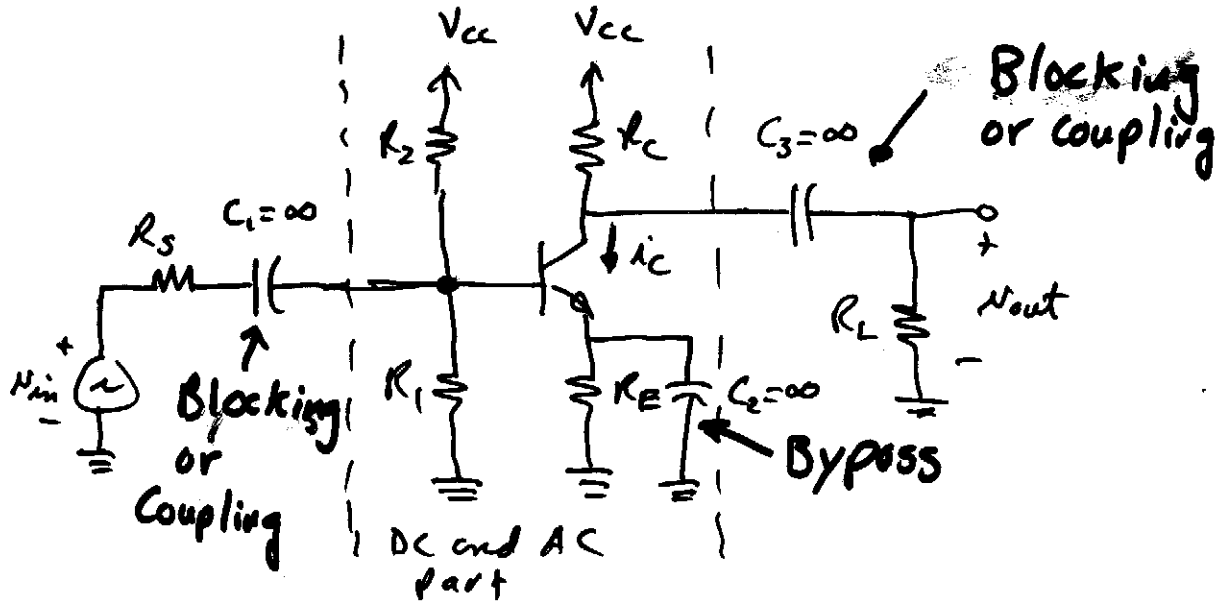 Vcc
Vcc
Blocking
or coupling
R2
RC
C3=∞
C1=∞
RS
iC
+
vout
RL
-
+
vin
-
Blocking
or
Coupling
R1
RE
C2=∞
Bypass
DC and AC
part